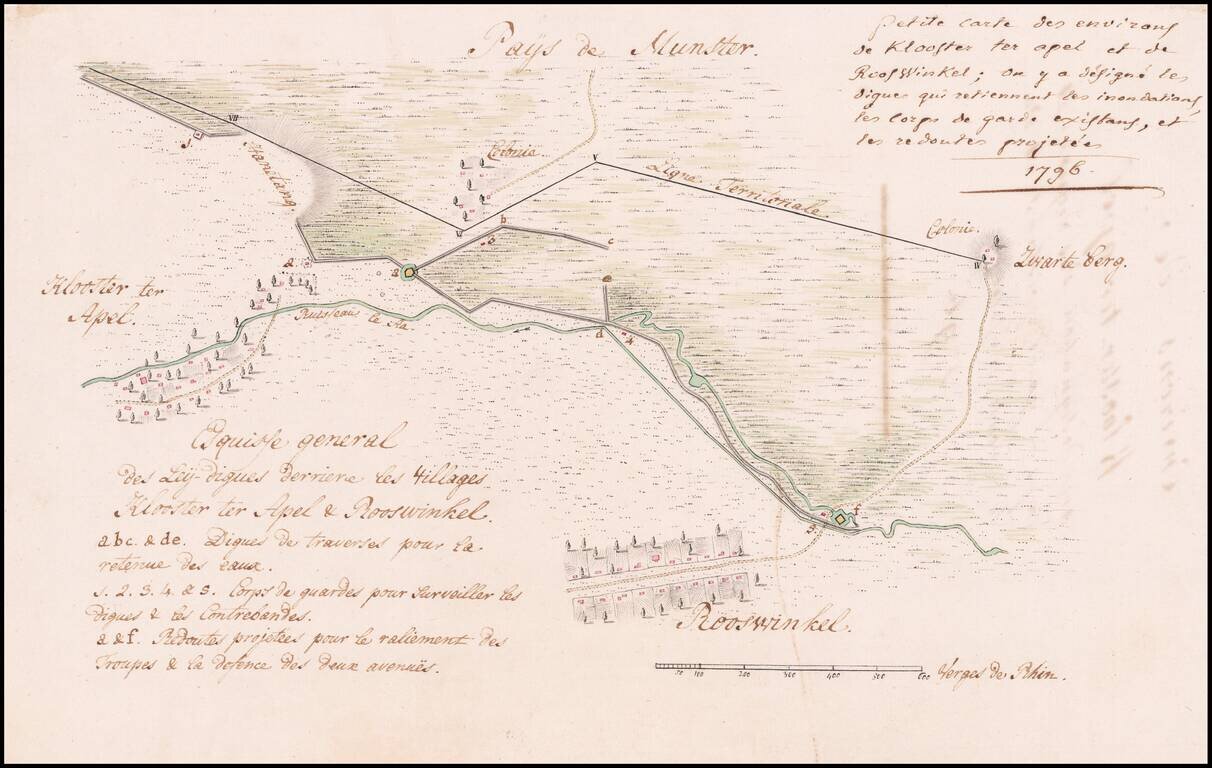 Païs de Munster.
Petite carte des environs
de Klooster ter apel et de
RoosWinkel, on y a désigné les
digues qui retiennent les inondations,
les corps de garde existans, et
les redoutes projetées
1796.
VII
5
Hametang.
Colonie.
V
Ligne Territoriale.
VI
b
c
Colonie.
IV
Swarte Berg.
2
a
e
Klooster ter
Apel.
Ruisseau le Aa
d
4
f
3
general
Digues Derriere les Villages
Klooster ter Apel & Rooswinkel
a b c. & de. Digues de traverses pour la
retenue des eaux.
1. 2. 3. 4. & 5. Corps de guardes pour surveiller les
Digues & les Contrebandes.
a & f. Redoutes projetées pour le raliement des
Troupes & la defence des deux avenuës.
Rooswinkel.
50 100 200 300 400 500 600 Verges de Rhin.